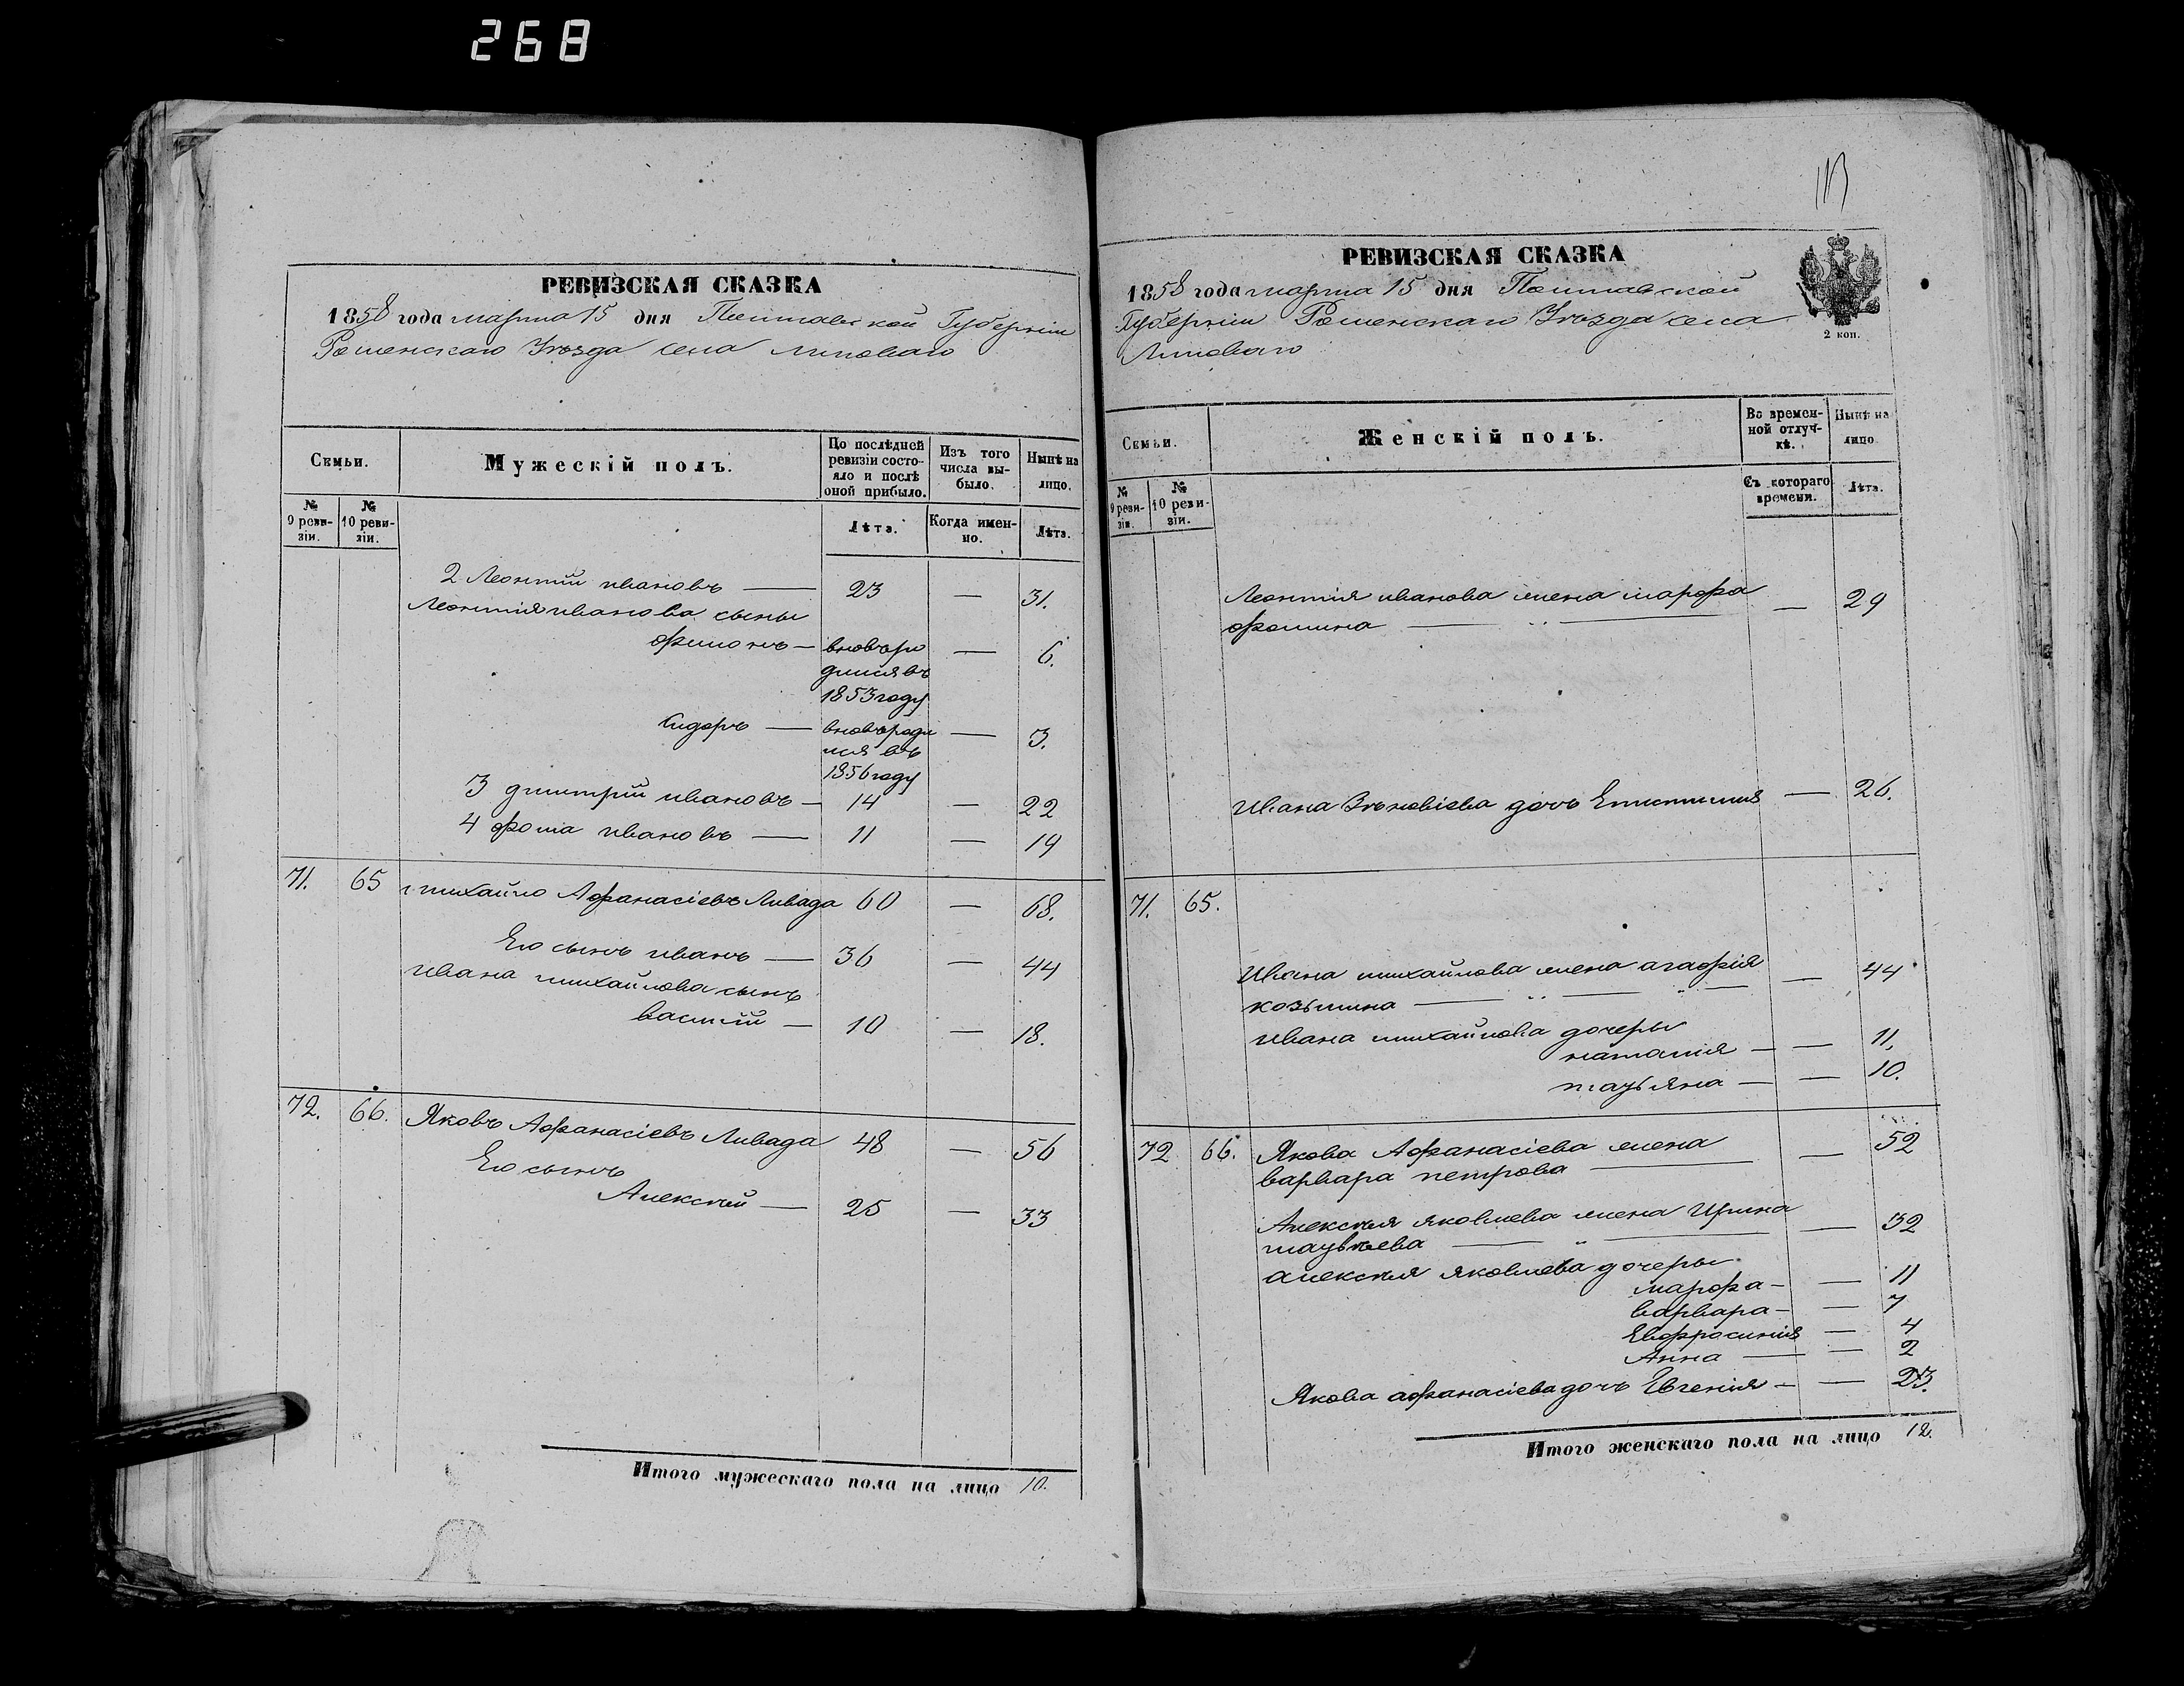 268
РЕВИЗСКАЯ СКАЗКА
1858 года марта 15 дня Полтавской Губерніи
Роменскаго Уѣзда села Липоваго
Семьи.
Мужескій полъ.
По послѣдней ревизіи состояло и послѣ оной прибыло.
Изъ того числа выбыло.
Нынѣ на лицо.
№ 9 ревизіи.
№ 10 ревизіи.
Лѣта.
Когда именно.
Лѣта.
2 Леонтій ивановъ — 23 — 31.
Леонтія иванова сыны
филонъ — вновь ро — 6.
дился въ
1853 году
Сидоръ — вновь роди — 3.
лся въ
1856 году
3 димитрій ивановъ — 14 — 22
4 фома ивановъ — 11 — 19
71. 65 михайло Афанасіевъ Ливада 60 — 68.
Его сынъ иванъ — 36 — 44
ивана михайлова сынъ
василій — 10 — 18.
72. 66. Яковъ Афанасіевъ Ливада 48 — 56
Его сынъ
Алексѣй — 25 — 33
Итого мужескаго пола на лицо 10.
113
РЕВИЗСКАЯ СКАЗКА
1858 года марта 15 дня Полтавской
Губерніи Роменскаго Уѣзда села
Липоваго
2 коп.
Семьи.
Женскій полъ.
Во временной отлучкѣ.
Нынѣ на лицо.
№ 9 ревизіи.
№ 10 ревизіи.
Съ котораго времени.
Лѣта.
Леонтія иванова жена марфа
фомина — „ — — 29
Ивана Зѣновіева дочь Епистимія — 26.
71. 65.
Ивана михайлова жена агафія — 44
козьмина — „ — „ —
ивана михайлова дочеры
наталія — — 11.
татьяна — — 10.
72 66. Якова Афанасіева жена — 52
варвара петрова —
Алексѣя яковлева жена Ирина — 32
матвѣева — „ —
алексѣя яковлева дочеры
марфа — — 11
варвара — — 7
Евфросинія — 4
Анна — — 2
Якова афанасіева дочь Евгенія — — 23.
Итого женскаго пола на лицо 12.